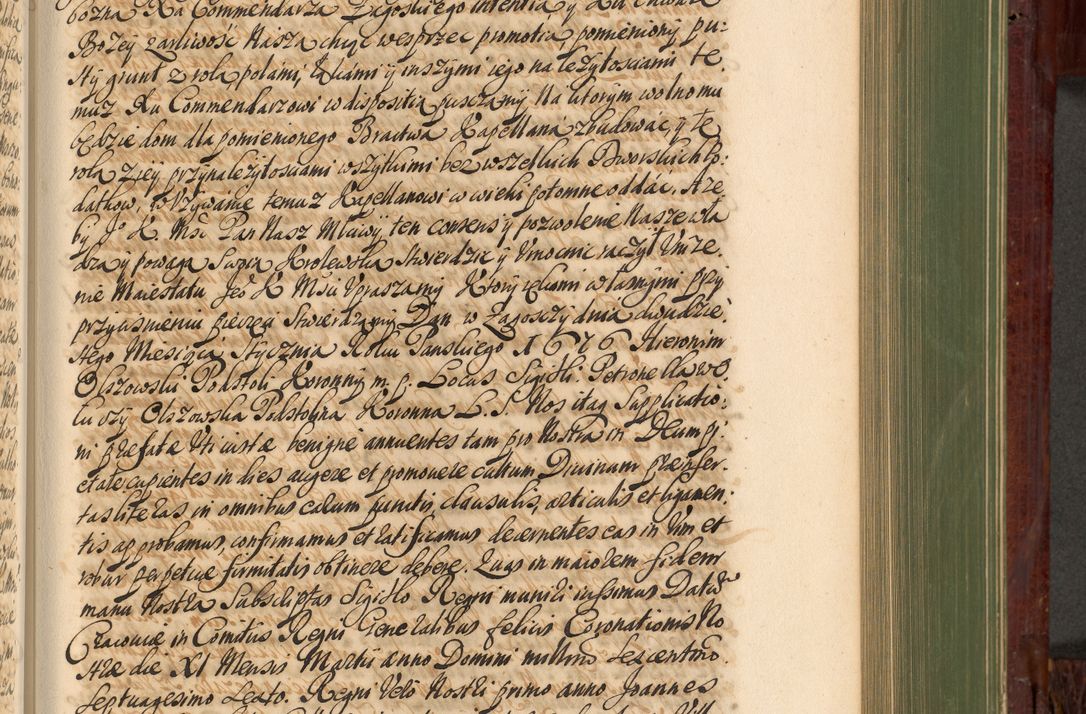 bożna Xa Commendarza Zagoskiego intentią y ku chwale
Bożey żarliwość Nasza chcąc wesprzec promotią, pomieniony pu:
sty grunt z rolą, polami, łąkami y inszymi iego należytosciami te
muz Xu Commendarzowi w dispositią puszczamy Na ktorym wolno mu
będzie dom dla pomienionego Bractwa Kapellana zbudować, y tę
rolą z iey przynależytosciami wszytkimi bez wszelkich Dworskich po:
datkow, w Używanie temuz Kapellanowi w wieki potomne oddać. Aże
by Jo K Msc Pan Nasz Młciwy ten consens y pozwolenie Nasze wła
dzą y powagą Swoią Krolewską stwierdzic y Umocnic raczył Uniże
nie Maiestatu Jeo K Msci Upraszamy Ktory rękami własnymi przy
przyciśnieniu pieczęci stwierdzamy Dan w Zagosczy dnia dwudzie
stego Miesiąca Stycznia Roku Panskiego 1676 Hieronim
Olszowski Podstoli Koronny m. p. Locus Sigilli. Petronella Wo
luczy Olszowska Podstolina Koronna L. S. Nos itaq Supplicatio:
ni præfatæ Uti iustæ benignè annuentes tam pro Nostra in Deum pi:
etate cupientes in dies augere et promovere cultum Divinum præinser
tas literas in omnibus earum punctis, clausulis, articulis et ligamen:
tis approbamus, confirmamus et ratificamus decernentes eas in Vim et
robur perpetuæ firmitatis obtinere debere. Quas in maiorem fidem
manu Nostra Subscriptas Sigillo Regni muniri iussimus Datum
Cracoviæ in Comitiis Regni Generalibus felicis Coronationis No
stræ die XI Mensis Martii Anno Domini millmo Sexcentmo
Septuagesimo Sexto. Regni Vero Nostri primo anno Joannes